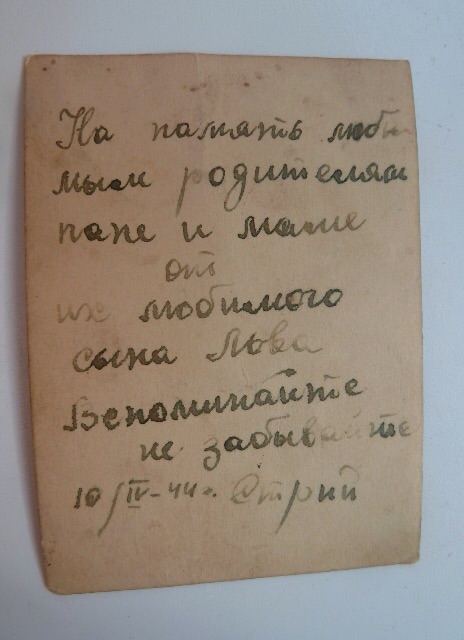 На память люби
мым родителям
папе и маме
от
их любимого
сына Лова
Вспоминайте
не забывайте
10/IV-44г. Стрий